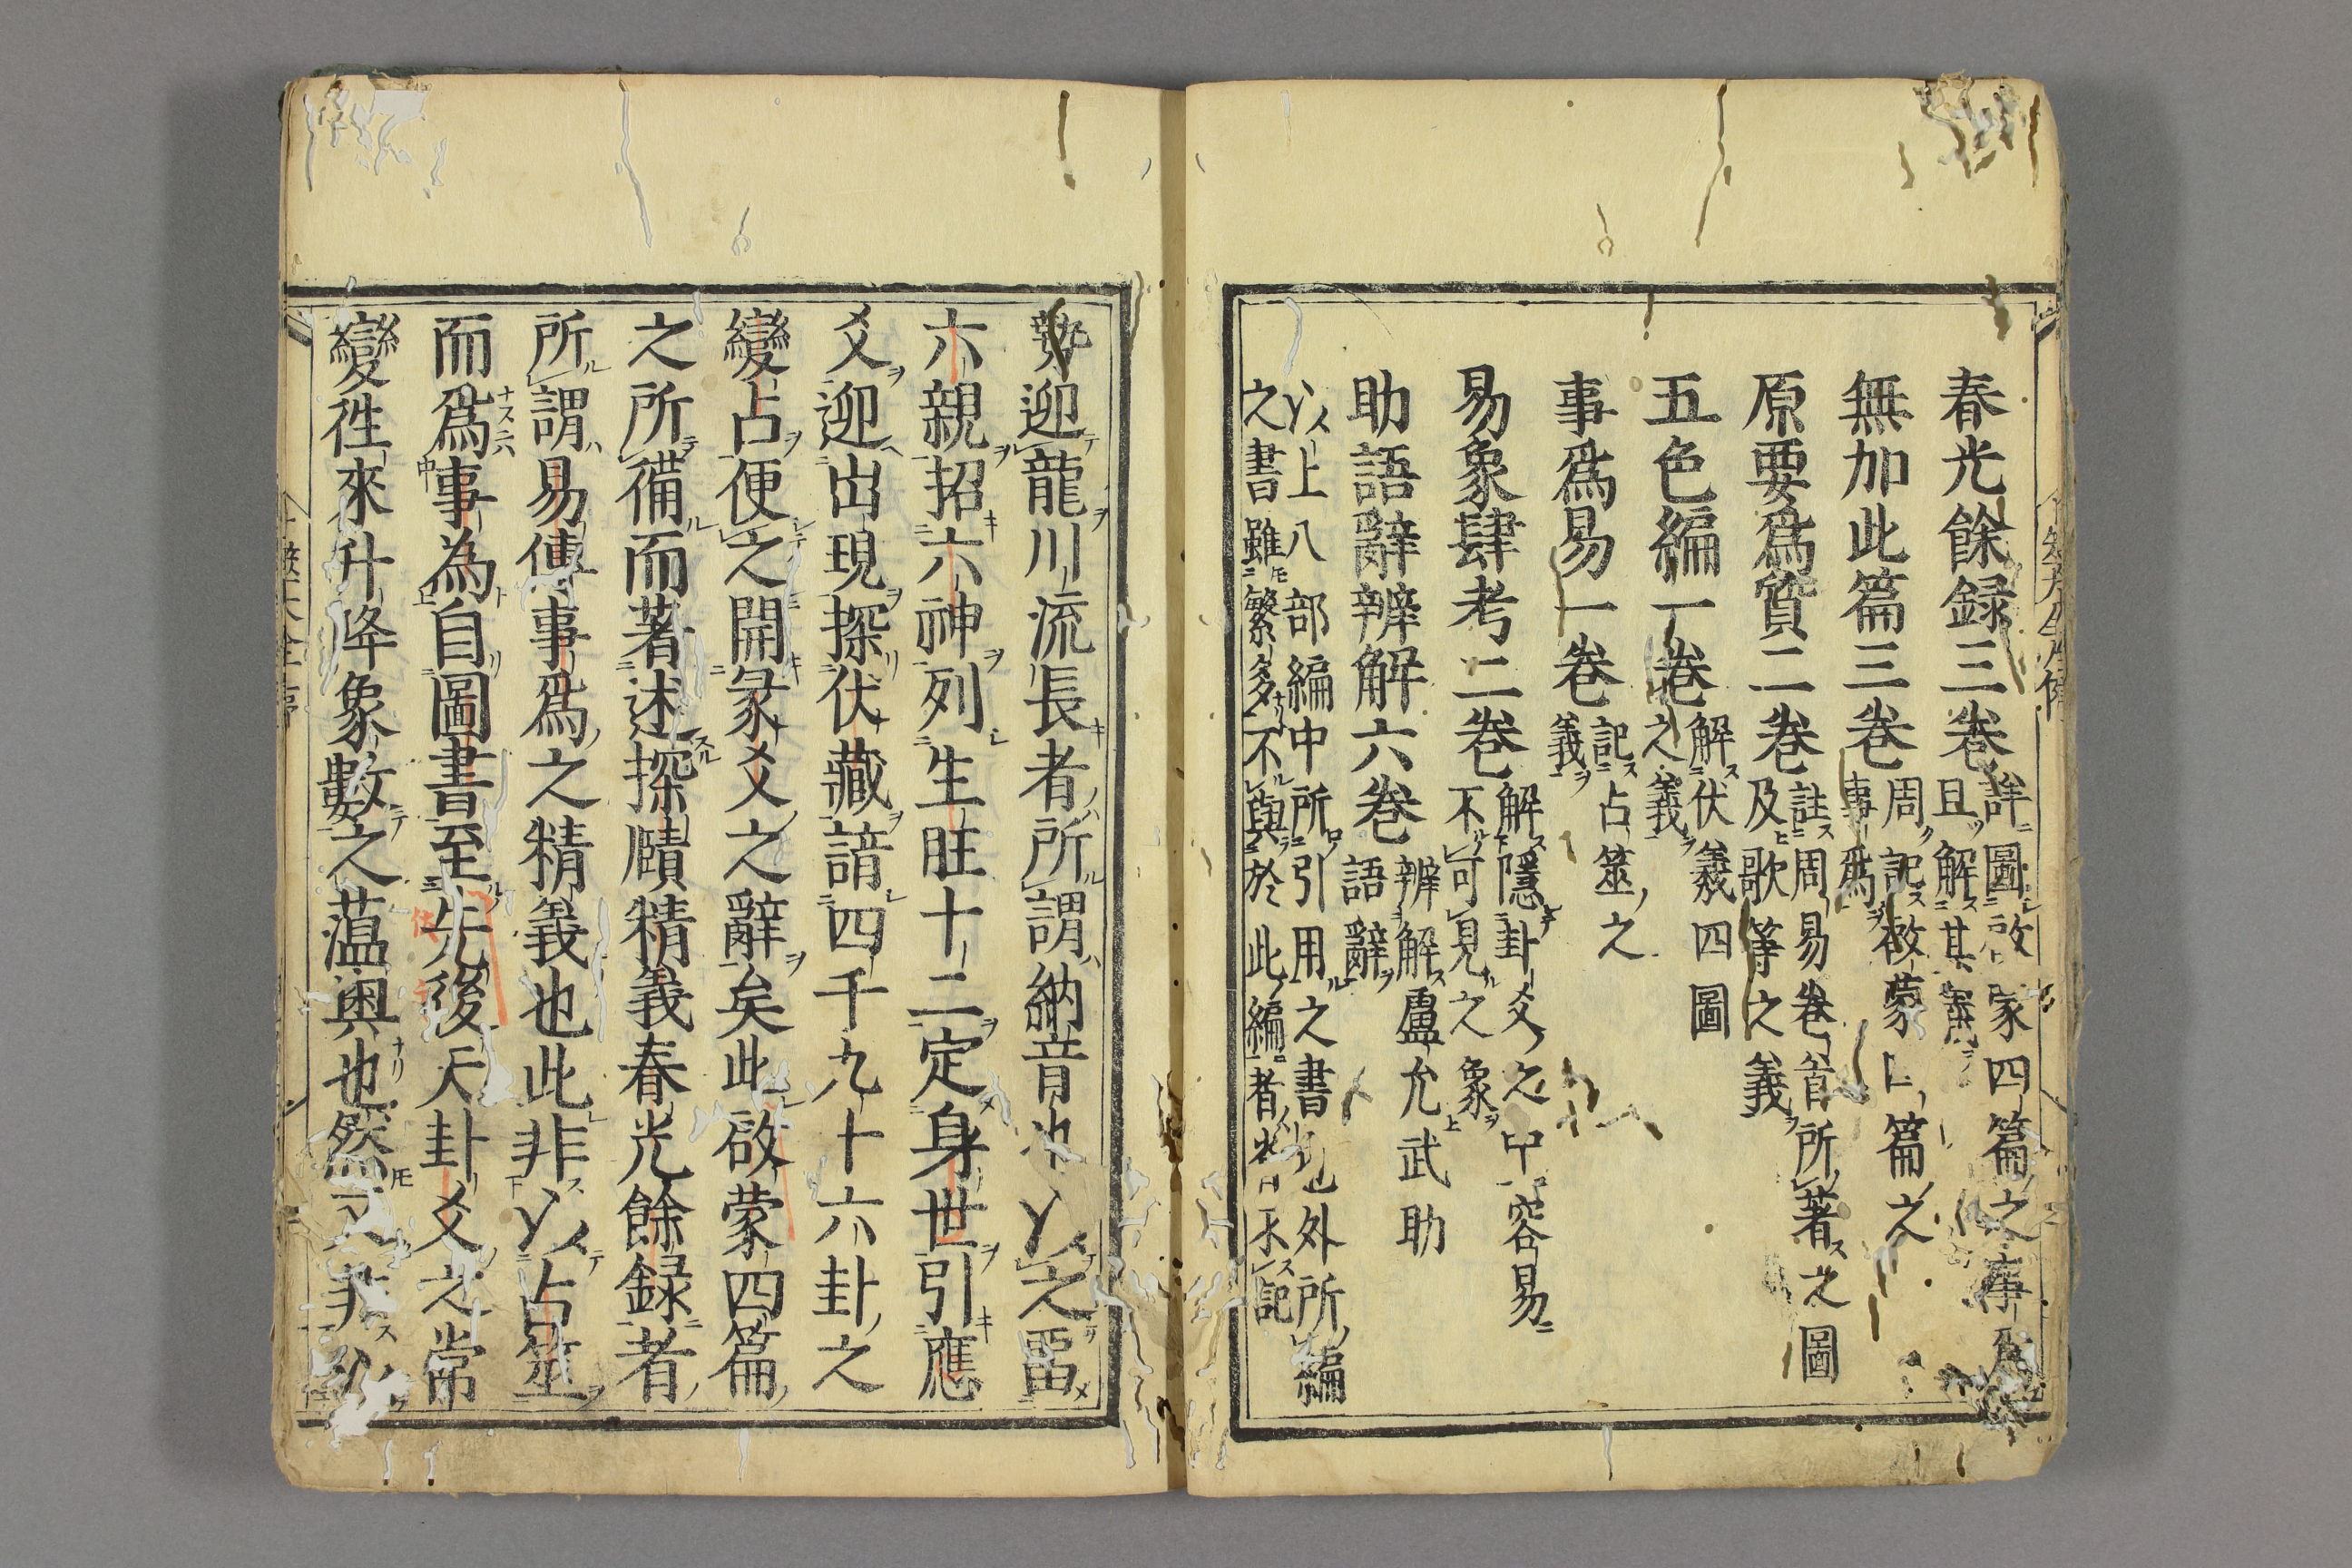 春光餘録三卷 詳圖啟家四篇之事爲
且解其案
無加此篇三卷 周記啟蒙四篇之
事爲
原要爲質二卷 註周易卷首所著之圖
及歌等之義
五色編一卷 解伏羲四圖
之義
事爲易一卷 記占筮之
義
易象肆考二卷 解隱卦爻之中容易
不可見之象
助語辭辨解六卷 辨解盧允武助
語辭
以上八部編中所引用之書也外所編
之書雖繁多不與於此編者皆不記
勢迎龍川流長者所謂納音也以之畱
六親招六神列生旺十二定身世引應
爻迎出現探伏藏諳四千九十六卦之
變占便之開彖爻之辭矣此啟蒙四篇
之所備而著述探賾精義春光餘録者
所謂易傳事爲之精義也此非以占筮
而爲事為自圖書至先後天卦爻之常
變徃來升降象數之薀奥也然又非以